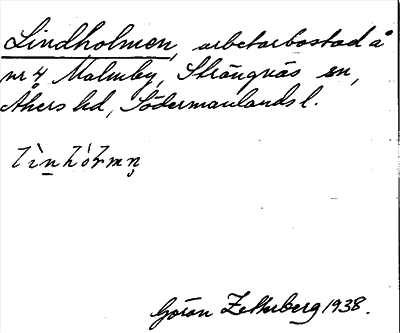 Lindholmen, arbetarbostad å
nr 4 Malmby, Strängnäs sn,
Åkers hd, Södermanlands l.
lìnhólmn̥
Göran Zetterberg 1938.